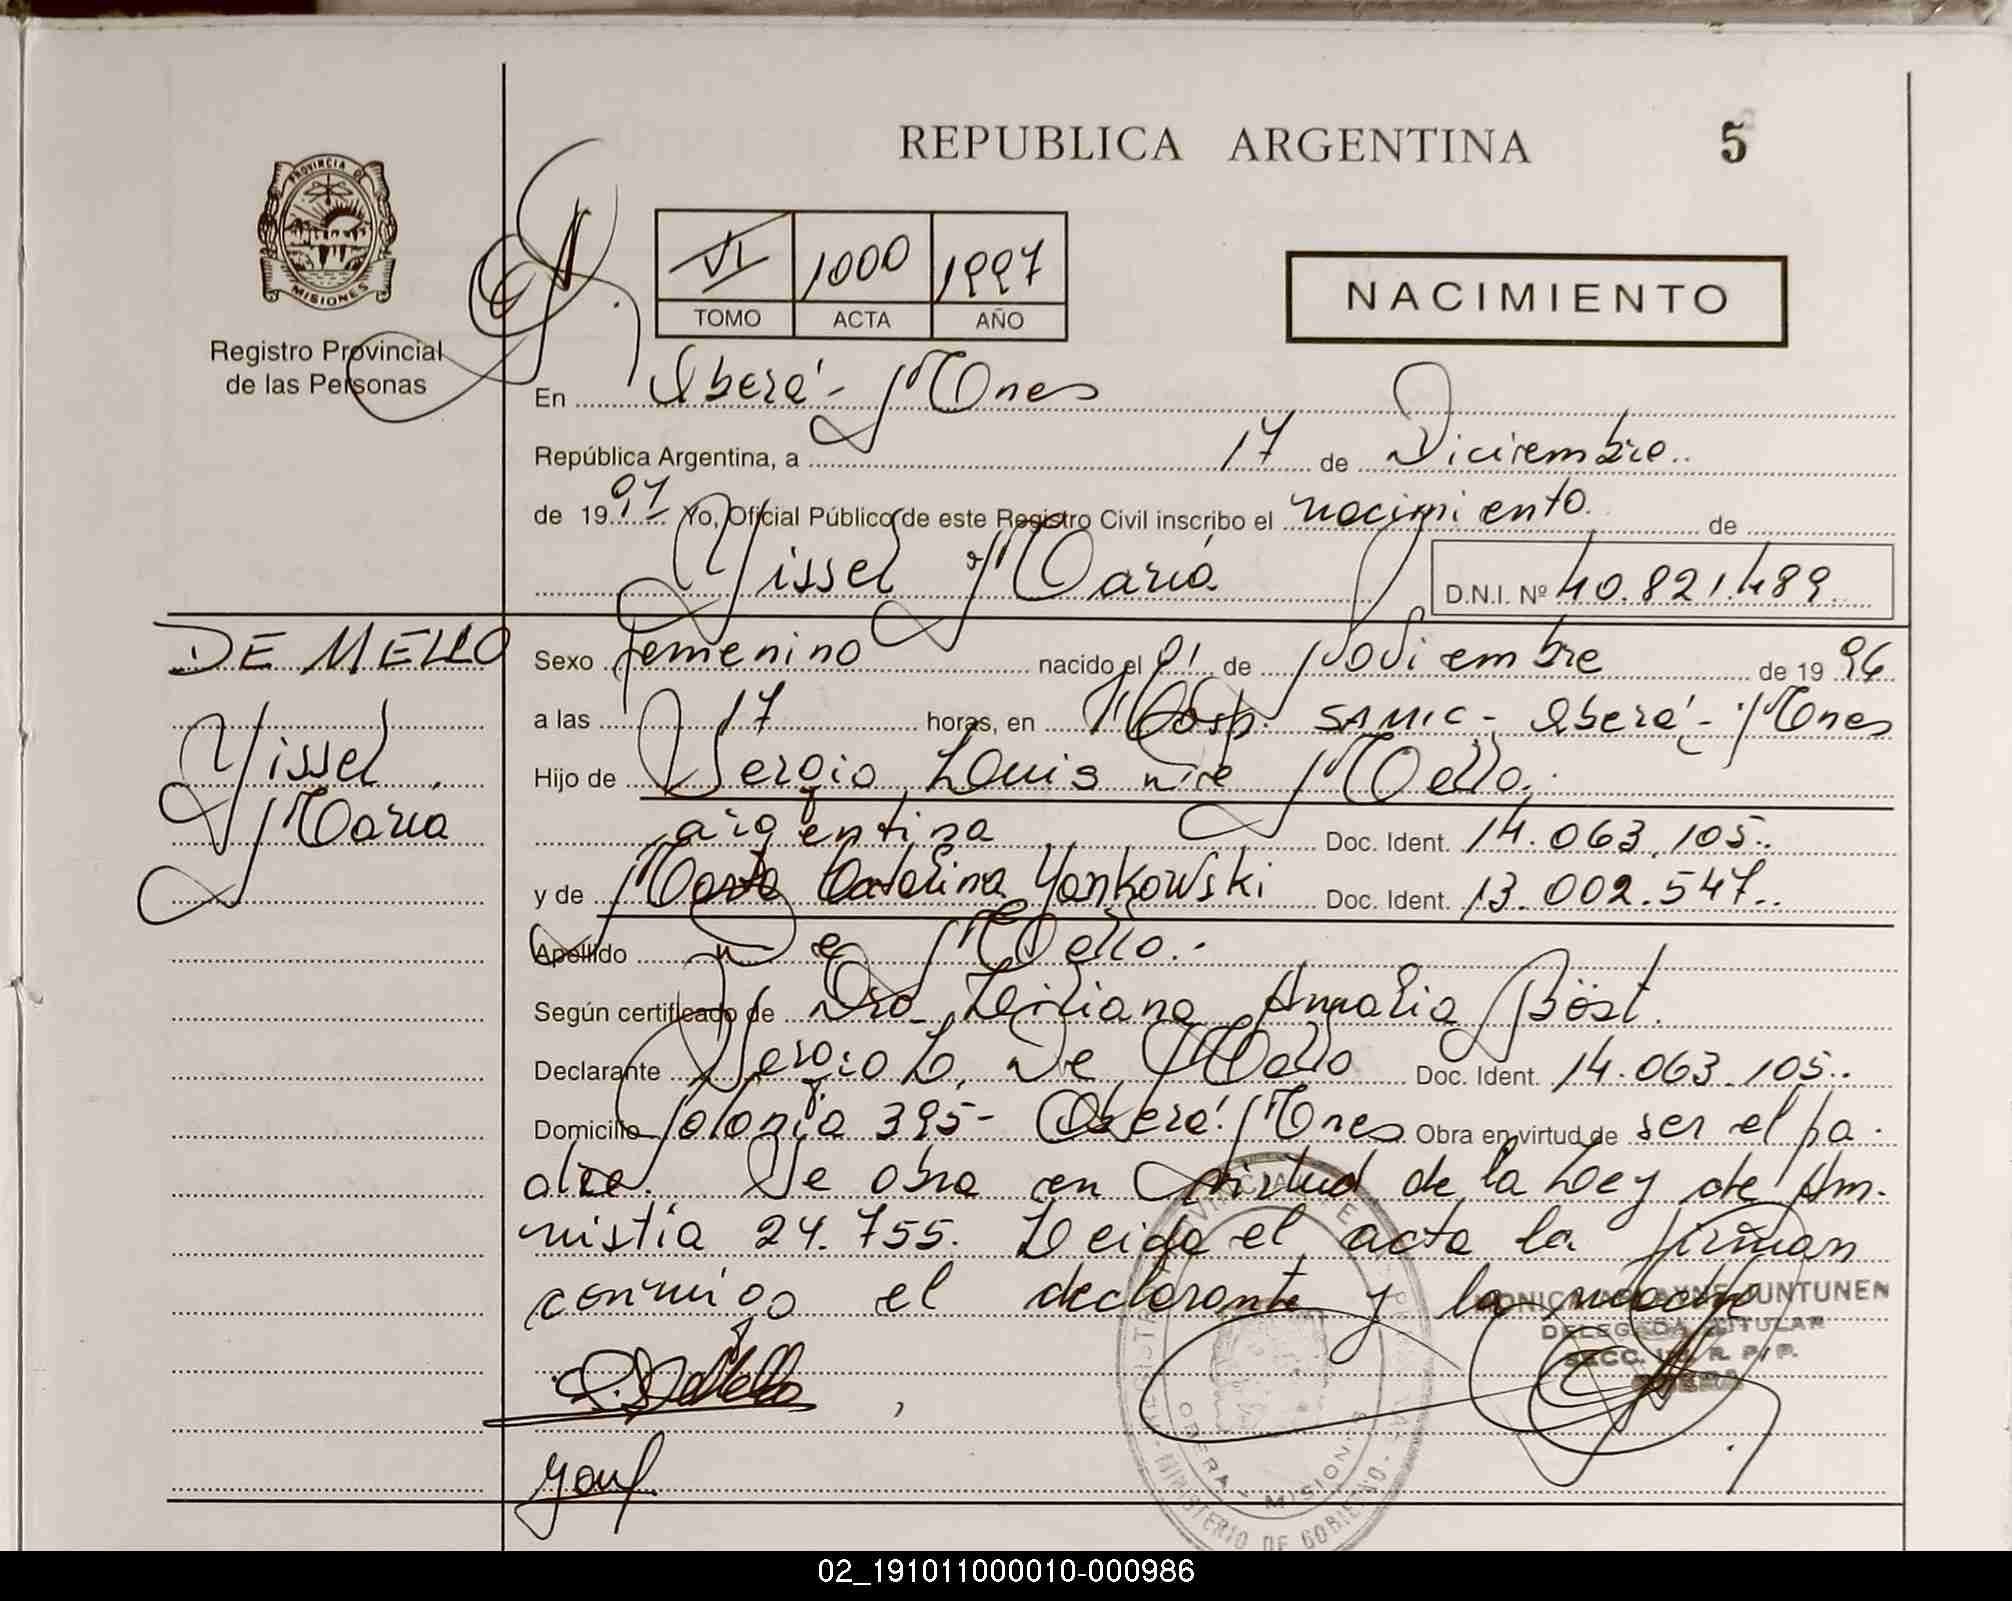 REPUBLICA ARGENTINA
5
PROVINCIA DE
MISIONES
Registro Provincial
de las Personas
VI 1000 1997
TOMO ACTA AÑO
NACIMIENTO
En Oberá - Mnes
República Argentina, a 17 de Diciembre
de 1997 Yo, Oficial Público de este Registro Civil inscribo el nacimiento de
Yissel María
D.N.I. Nº 40.821.489
DE MELLO
Yissel
María
Sexo femenino nacido el 01 de Noviembre de 1996
a las 17 horas, en Hosp. SAMIC - Oberá - Mnes
Hijo de Sergio Luis De Mello,
argentina Doc. Ident. 14.063.105
y de Marta Catalina Yankowski Doc. Ident. 13.002.547
Apellido De Mello.
Según certificado de Dra. Liliana Amalia Böst.
Declarante Sergio L. De Mello Doc. Ident. 14.063.105
Domicilio Polonia 395 - Oberá. Mnes Obra en virtud de ser el pa-
dre. Se obra en virtud de la Ley de Am-
nistia 24.755. Leida el acta la firman
conmigo el declarante y la madre
MONICA JUNTUNEN
DELEGADA TITULAR
SECC. R. P. P.
OBERA
OBERA - MISIONES
MINISTERIO DE GOBIERNO
02_191011000010-000986